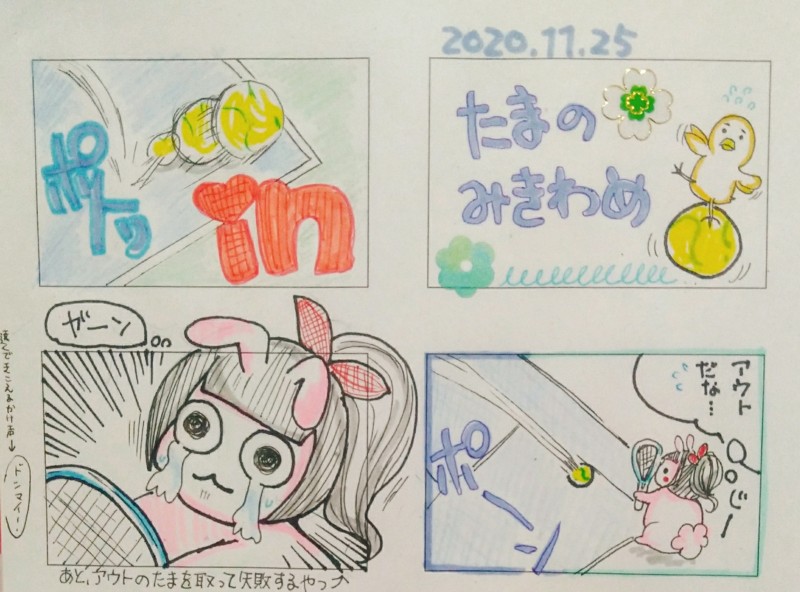 2020.11.25
たまの
みきわめ
アウト
だな…
じー
ポーン
ポトッ
in
ガーン
遠くできこえるかけ声↓
ドンマイー!
あと、アウトのたまを取って失敗するやつ